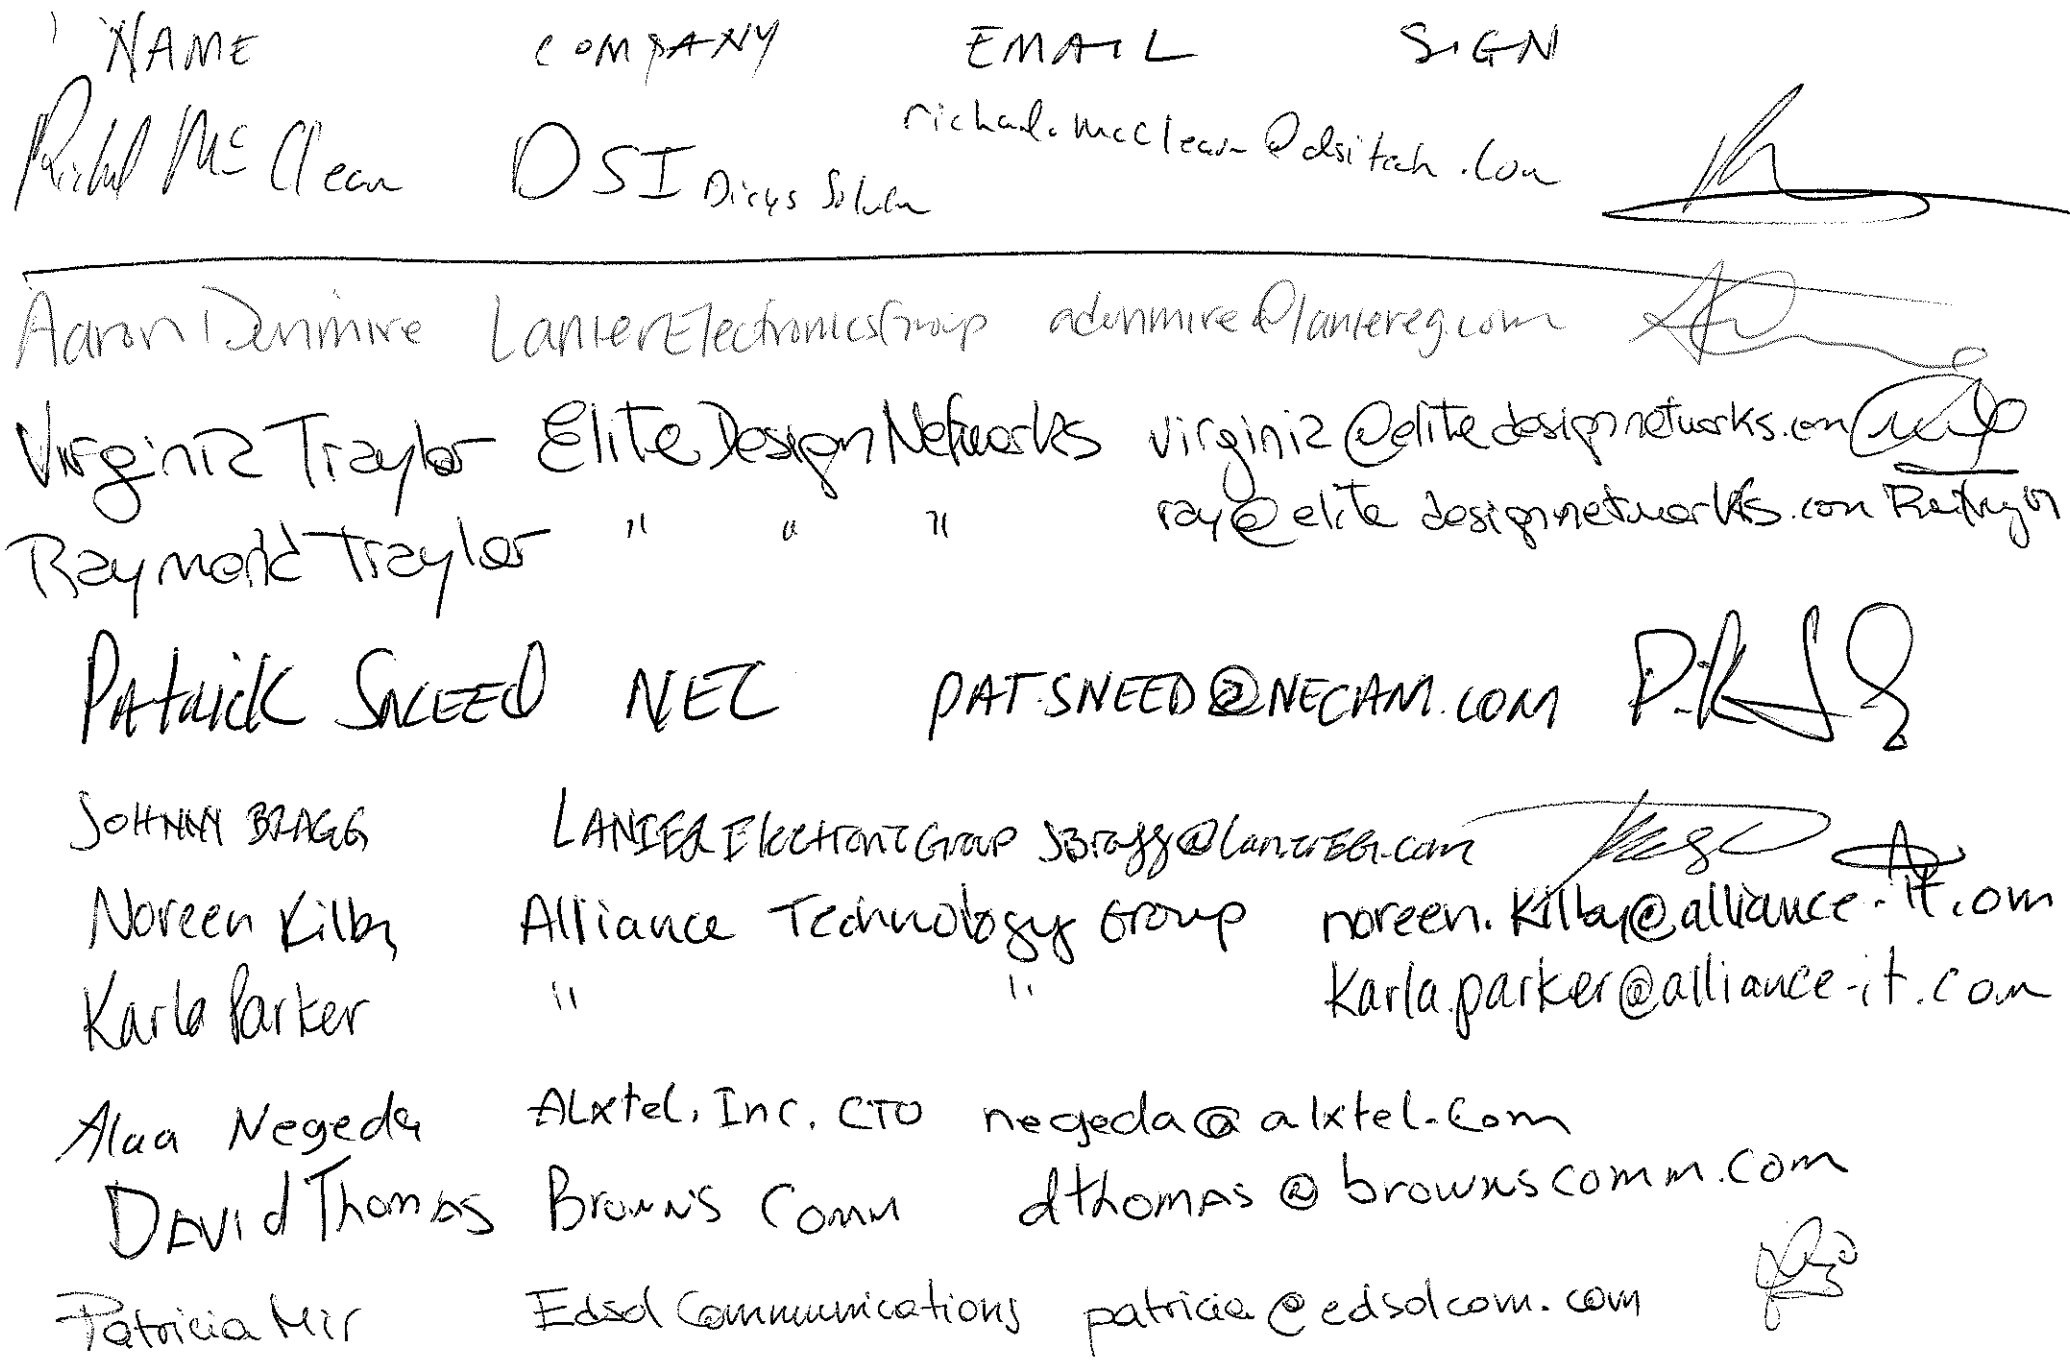 NAME COMPANY EMAIL SIGN
Richard McClean DSI richard.mcclean@dsitech.com
Aaron Dunmire LanierElectronicsGroup adunmire@laniereg.com
Virginia Traylor Elite Design Networks virginia@elitedesignnetworks.com
Raymond Traylor " " " ray@elitedesignnetworks.com
Patrick Sneed NEC PAT.SNEED@NECAM.COM
JOHNNY BRAGG LANIER Electronic Group JBragg@LanierEG.com
Noreen Kilby Alliance Technology Group noreen.kilby@alliance-it.com
Karla Parker " " Karla.parker@alliance-it.com
Alaa Negeda ALxtel, Inc. CTO negeda@alxtel.com
David Thomas Browns Comm dthomas@brownscomm.com
Patricia Mir Edsol Communications patricia@edsolcom.com